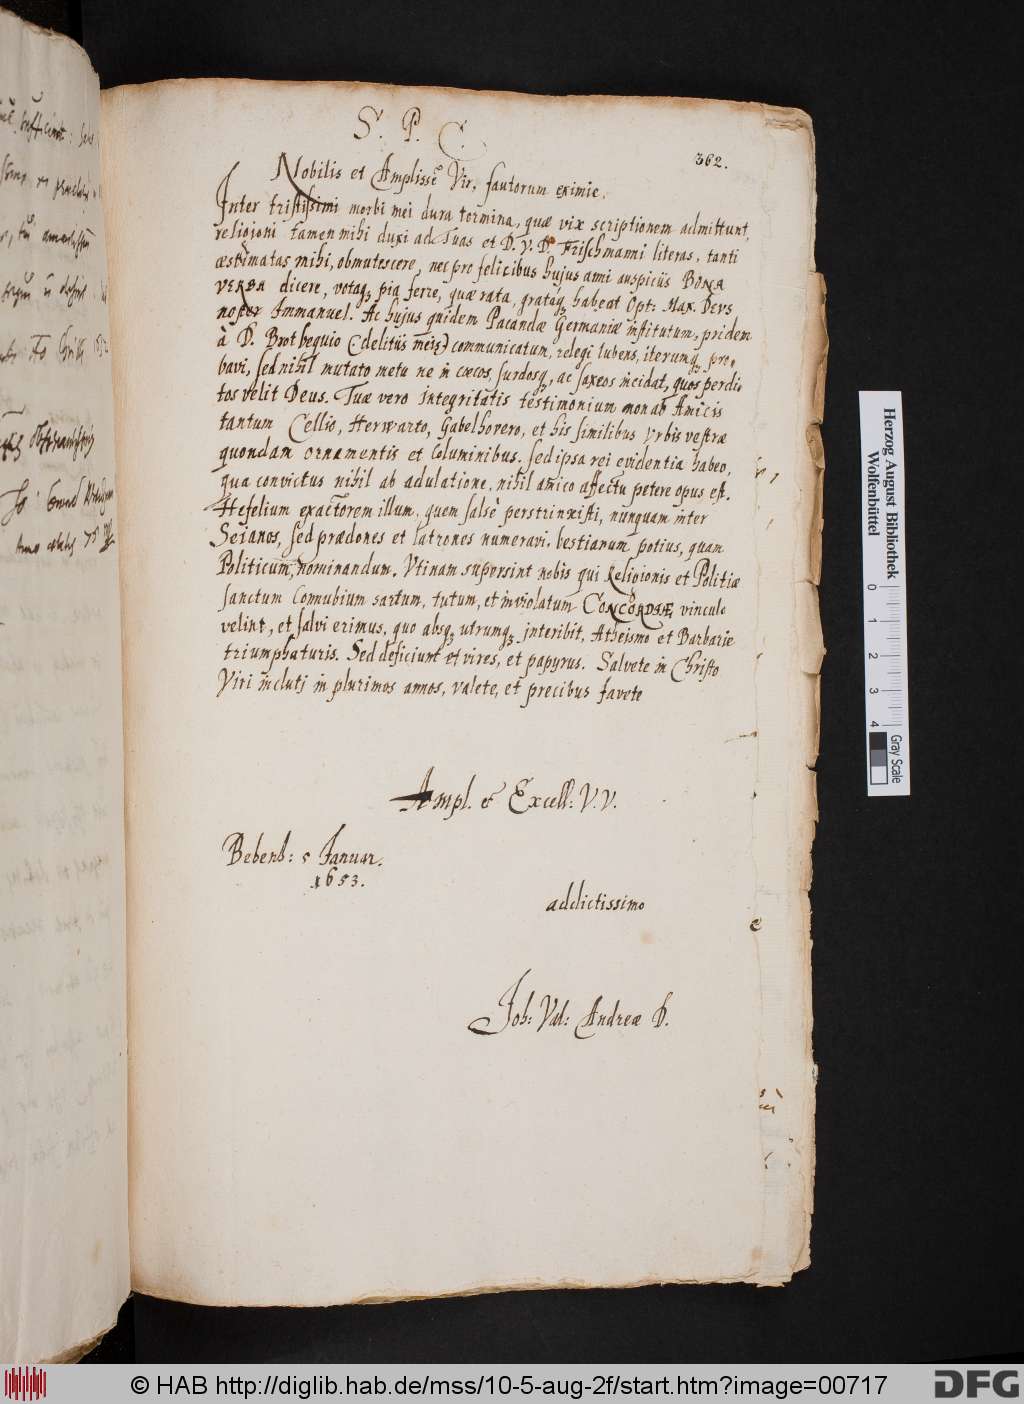 S. P. C.
362.
Nobilis et Amplisse Vir, fautorum eximie.
Inter tristissimi morbi mei dura tormina, quæ vix scriptionem admittunt,
religioni tamen mihi duxi ad Tuas et D. V. D. Frischmanni literas, tanti
æstimatas mihi, obmutescere, nec pro felicibus hujus anni auspiciis BONA
VERBA dicere, votaq; pia ferre, quæ rata, grataq; habeat Opt: Max. DEVS
noster Immanuel. Ac hujus quidem Pacandæ Germaniæ institutum, pridem
à D. Brothequio (delitiis meis) communicatum, relegi lubens, iterumq; pro-
bavi, sed nihil mutato metu ne in cæcos, surdosq; ac saxeos incidat, quos perdi-
tos velit Deus. Tuæ vero integritatis testimonium non ab Amicis
tantum Cellio, Herwarto, Gabelhovero, et his similibus Vrbis vestræ
quondam ornamentis et Columinibus. sed ipsa rei evidentia habeo,
qua convictus nihil ab adulatione, nihil amico affectu petere opus est.
Hefelium exactorem illum, quem falsè perstrinxisti, nunquam inter
Seianos, sed prædones et latrones numeravi, bestiarum potius, quam
Politicum, nominandum. Vtinam supersint nobis qui Religionis et Politiæ
sanctum Connubium sartum, tutum, et inviolatum CONCORDIÆ vinculo
velint, et salvi erimus, quo absq; utrumq; interibit, Atheismo et Barbarie
triumphaturis. Sed deficiunt et vires, et papyrus. Salvete in Christo
Viri incluti in plurimos annos, valete, et precibus favete
Ampl. et Excell: V. V.
Bebenh: 5 Januar.
1653.
addictissimo
Joh: Val: Andreæ D.
Herzog August Bibliothek
Wolfenbüttel
0 1 2 3 4
Gray Scale
© HAB http://diglib.hab.de/mss/10-5-aug-2f/start.htm?image=00717
DFG